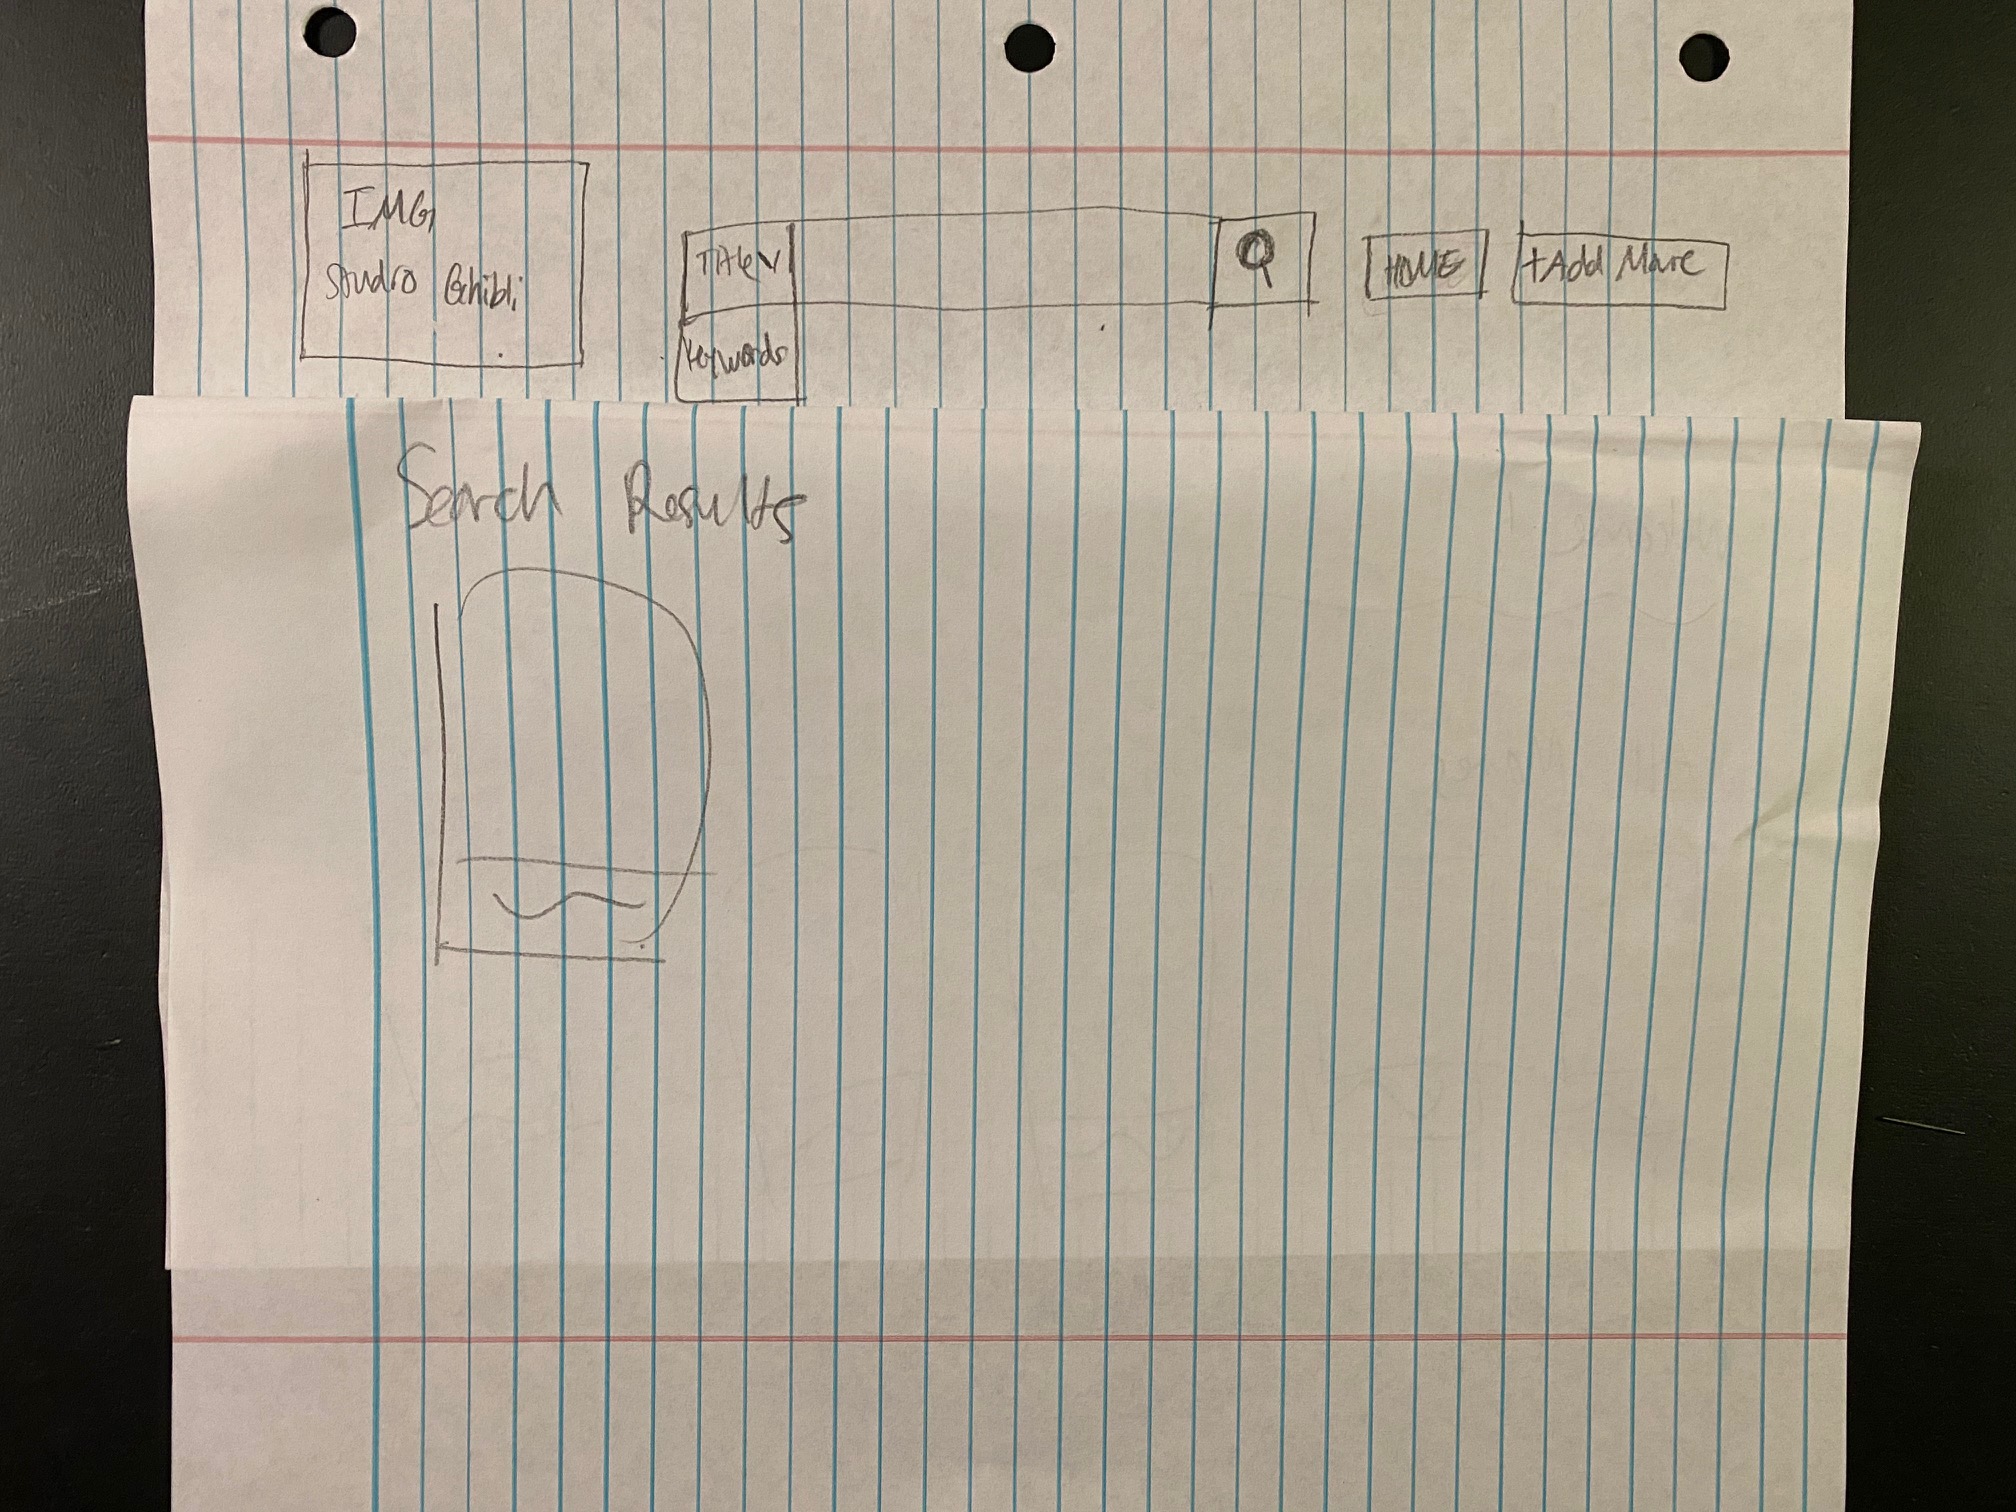 IMG
Studio Ghibli
Title V
Keywords
HOME
+Add More
Search Results